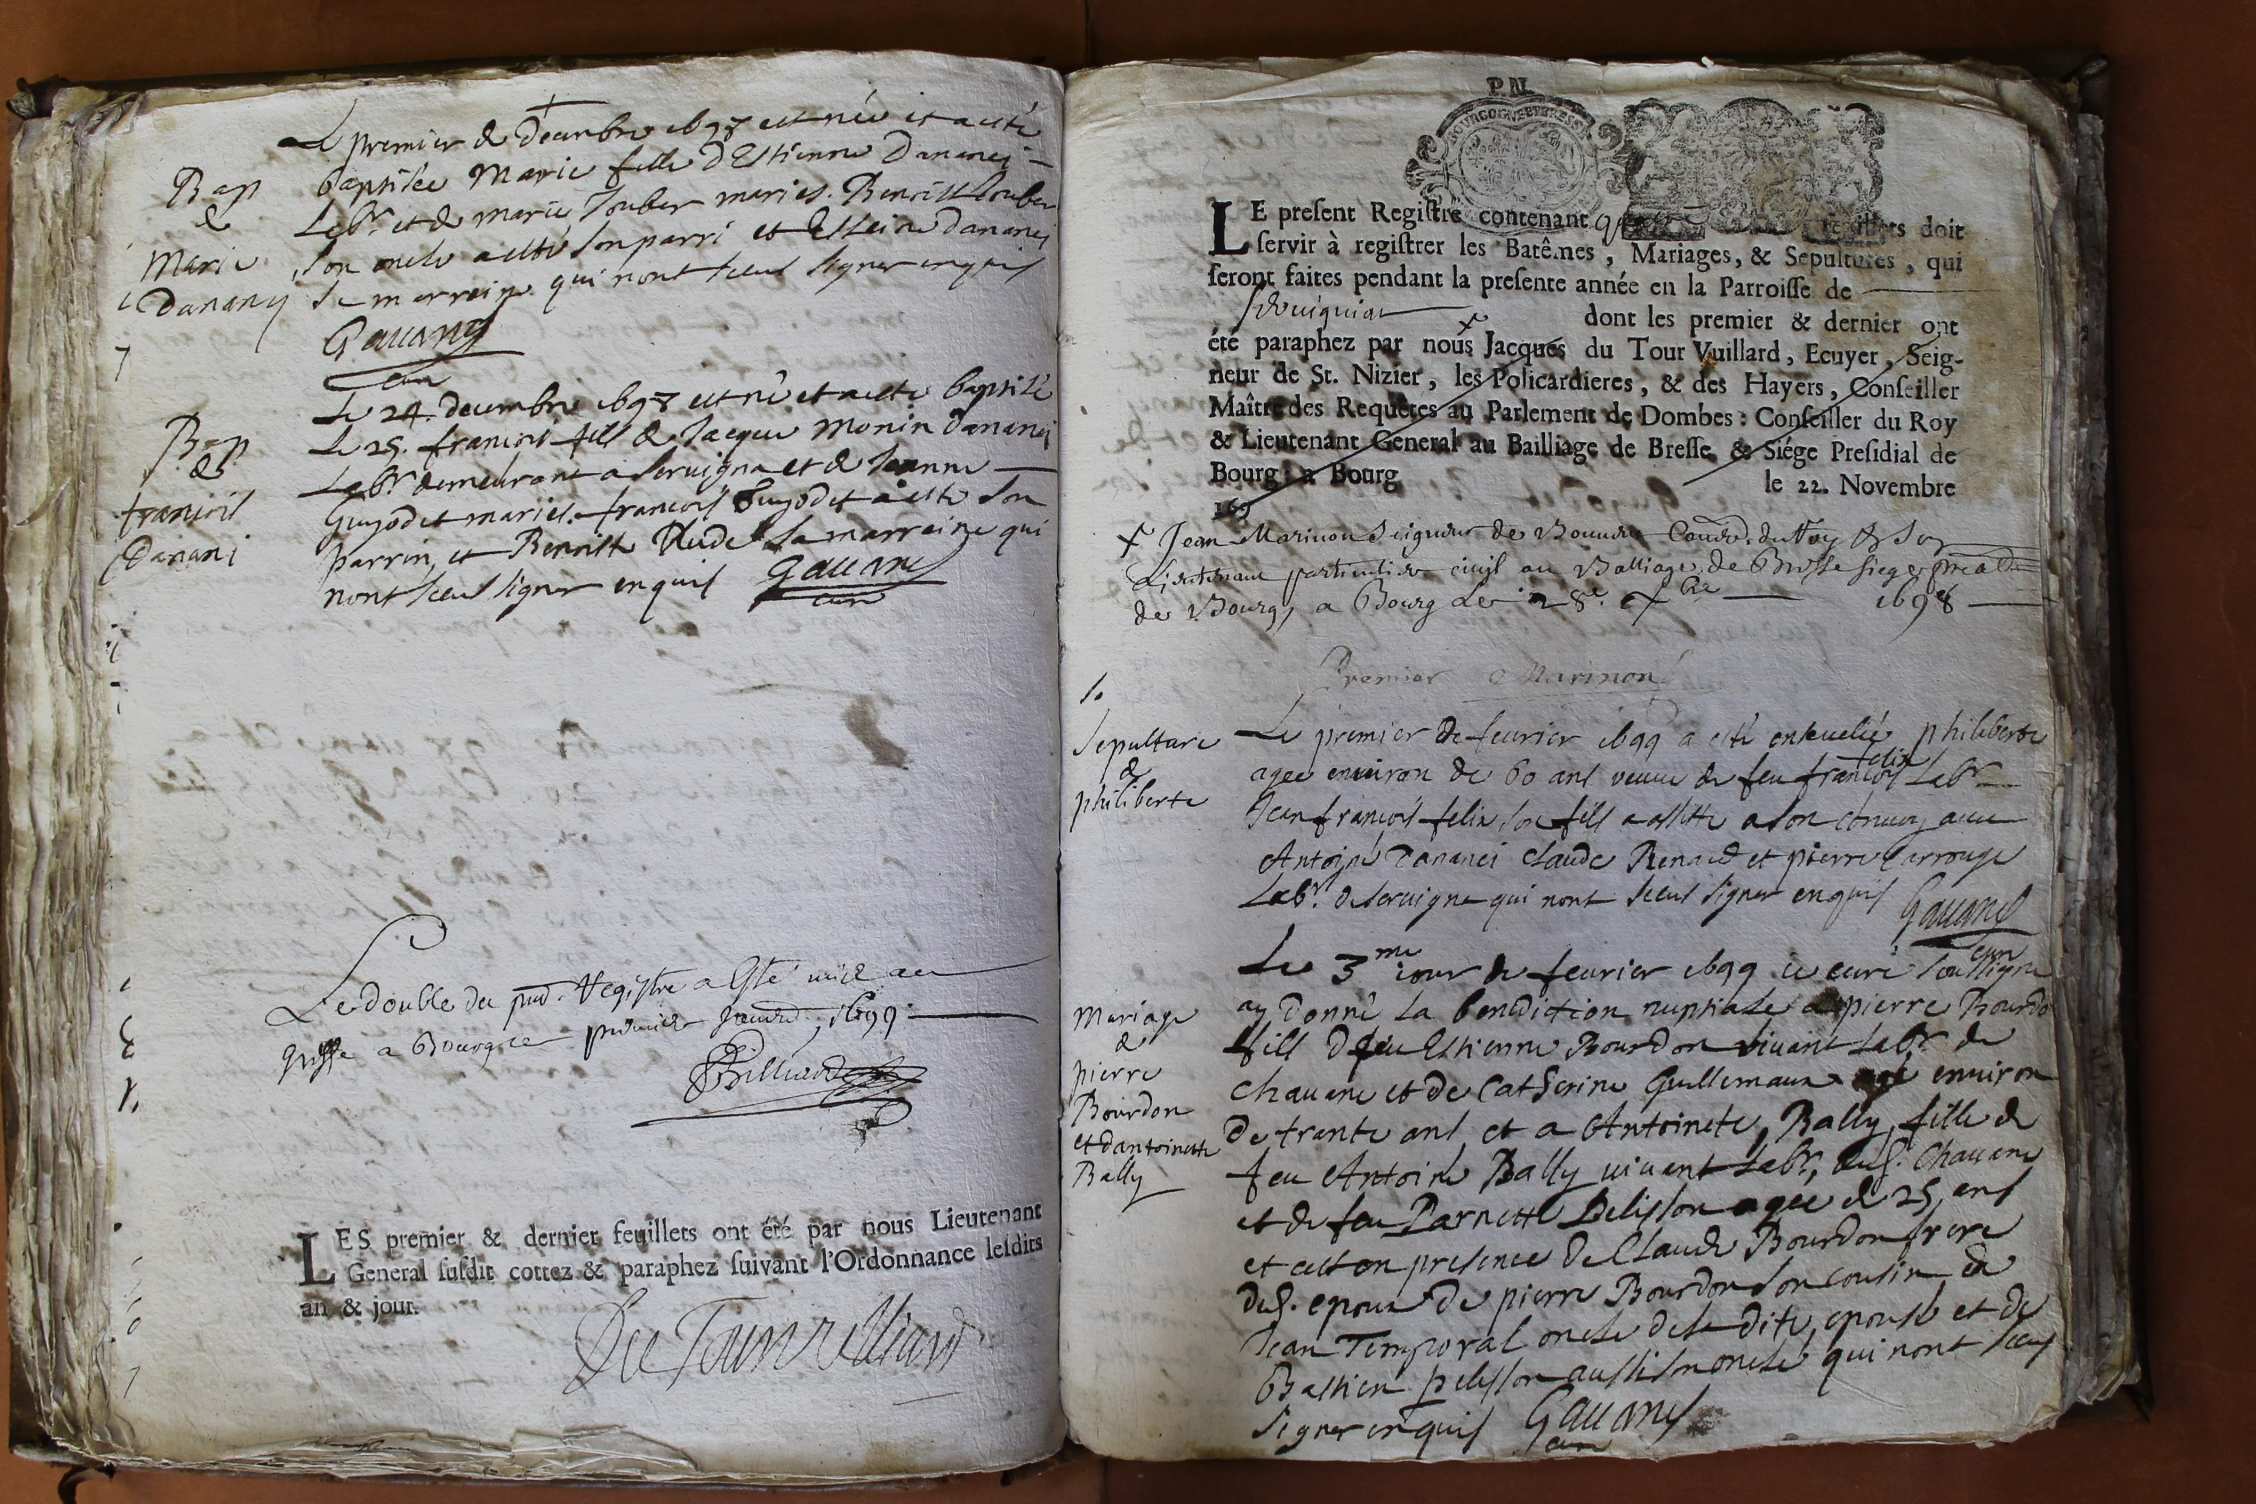 Le premier de decembre 1698 est née et a esté
baptisée Marie fille d'Estienne Dananci
Lab.r et de marie Jouber mariés. Benoist Jouber
son oncle a esté son parri et Esteine Dananci
sa marreine qui nont sceus signer enquis
Gauand
cure
Bap
de
Marie
Dananci
Le 24. decembre 1698 est né et a esté baptisé
le 25. francois fils de Jacque Monin Dananci
Lab.r demeurant a servigna et de Jeanne
Guyodet mariés. francois Guyodet a esté son
parrin, et Benoiste Dude sa marreine qui
nont sceus signer enquis Gauand
cure
Bap.
de
francois
Danani
Le double du pnt. Registre a esté mis au
greffe a Bourg ce premier 1699
Billiard
LES premier & dernier feuillets ont été par nous Lieutenant
General susdit cottez & paraphez suivant l'Ordonnance lesdits
an & jour.
Du Tour Villiard
P. N.
BOURGOGNE ET BRESSE
LE present Registre contenant feuillets doit
servir à registrer les Batêmes, Mariages, & Sepultures, qui
seront faites pendant la presente année en la Parroisse de
Servignat dont les premier & dernier ont
été paraphez par nous Jacques du Tour Vuillard, Ecuyer, Seig-
neur de St. Nizier, les Policardieres, & des Hayers, Conseiller
Maître des Requêtes au Parlement de Dombes: Conseiller du Roy
& Lieutenant General au Bailliage de Bresse, & Siége Presidial de
Bourg: a Bourg le 22. Novembre
169
+ Jean Marinon Seigneur de du Roy &
Lieutenant particulier civil au Balliage de Bresse siege
de Bourg, a Bourg Le 28e. Xbre 1698
Premier Marinon
1.
Sepulture
de
philiberte
Le premier de feurier 1699 a esté enseuelie philiberte
agee enuiron de 60 ans veuue de feu francois felix Lab.r
Jean francois felix son fils a assisté a son conuoy auec
Antoine Dananci Claude Renaud et pierre Carrouge
Lab.r de seruigna qui nont sceus signer enquis Gauand
cure
Mariage
de
pierre
Bourdon
et dantoinette
Bally
Le 3me iour de feurier 1699 ie curé soussigné
ay donné la benediction nuptiale a pierre Bourdon
fils de feu Estienne Bourdon viuant Lab.r de
chauane et de Catherine Guillemaux agé enuiron
de trante ans et a Antoinete Bally fille de
feu Antoine Bally viuant Lab.r dud. Chauane
et de feu Parnette Pelisson agee de 25 ans
et cest en presence de Claude Bourdon frere
dud. epoux de pierre Bourdon son cousin de
Jean Temporal oncle de la dite epouse et de
Bastien pelisson aussi son oncle qui nont sceus
signer enquis Gauand
cure